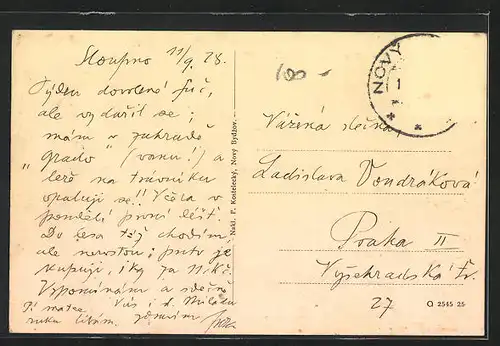 Sloupno 11/9. 28.
Týden dovolené fuč,
ale vydařil se;
mám v zahradě
"grado" (vanu!) a
leže na trávníku
opaluji se!! Včera v
pondělí první déšť.
Do lesa též chodím,
ale nerostou; proto je
kupuji, 1 kg za
Vzpomínám a srdečně
Vás i d.
zdravím
ruku líbám.
Nakl. F. Kostelecký, Nový Bydžov.
NOVÝ
Vážená slečna
Ladislava Vondráková
Praha II
Vyšehradská tř.
27
Q 2545 25